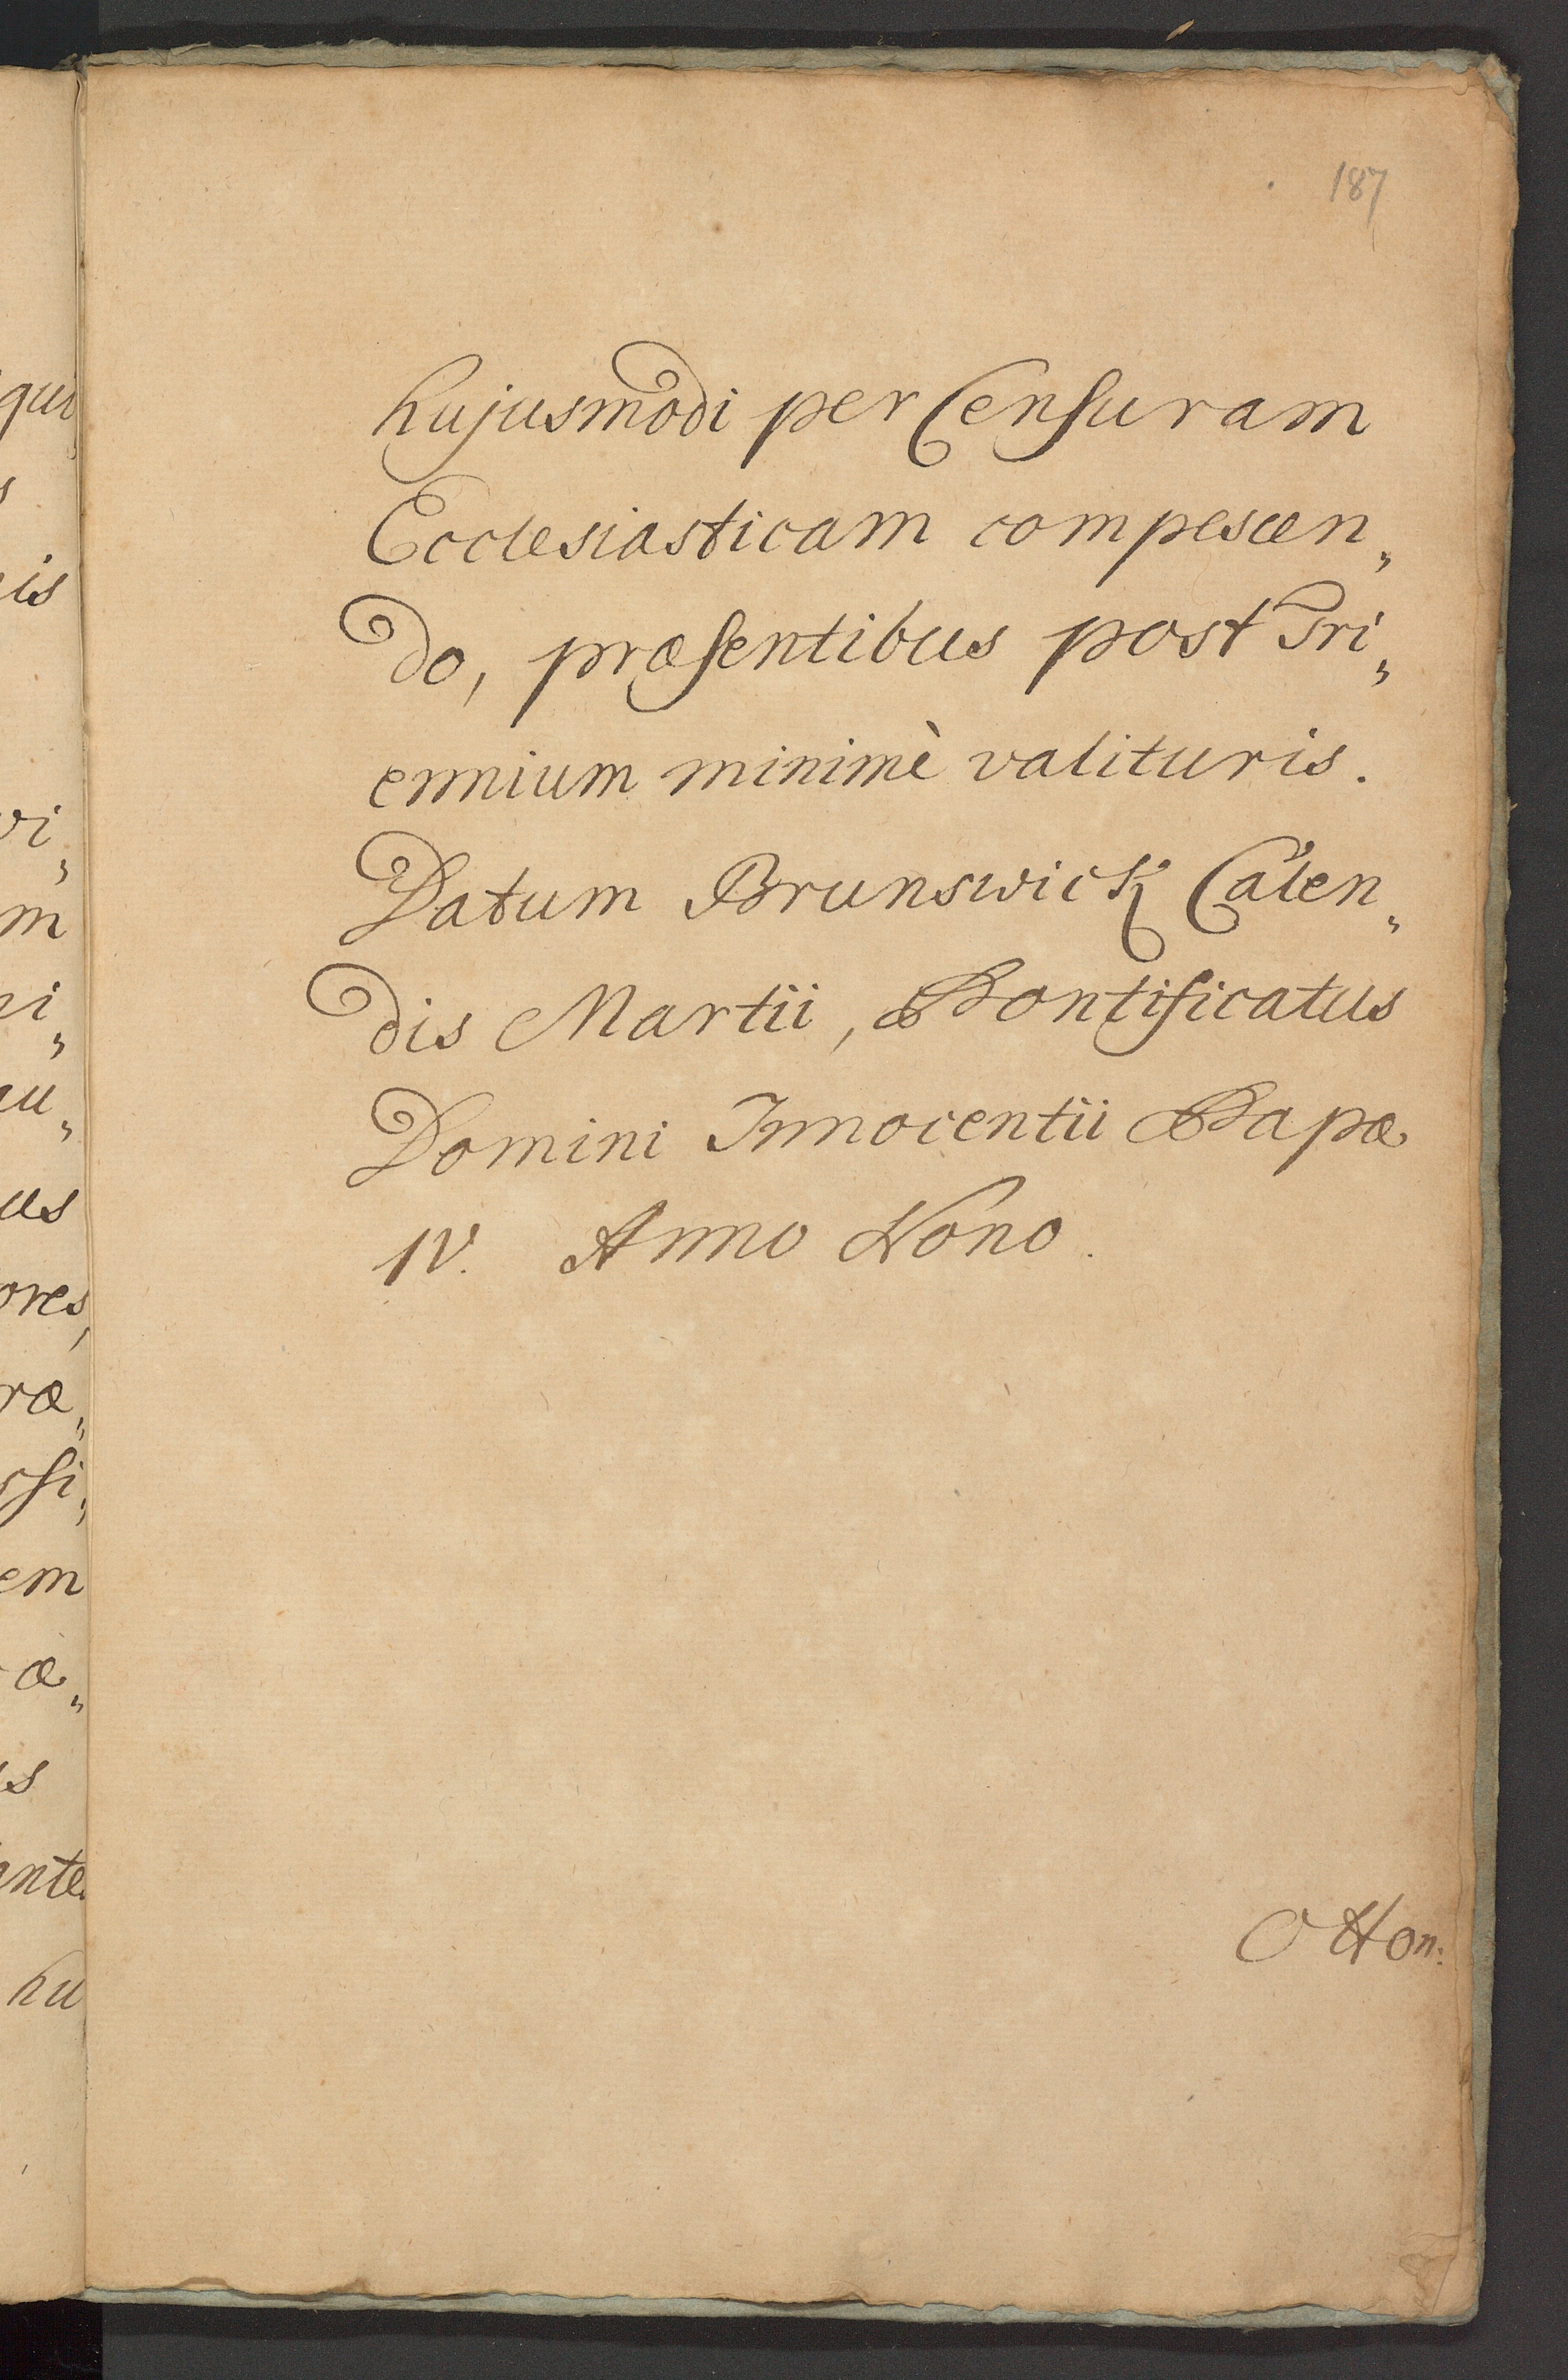 187
hujusmodi per Censuram
Ecclesiasticam compescen„
do, præsentibus post Tri„
ennium minimè valituris.
Datum Brunswick Calen„
dis Martii, Pontificatus
Domini Innocentii Papæ
IV. Anno Nono.
Otton:
qui
s
is
vi„
m
ni„
au„
us
ores,
ræ„
ssi„
em
æ„
is
ante
hu